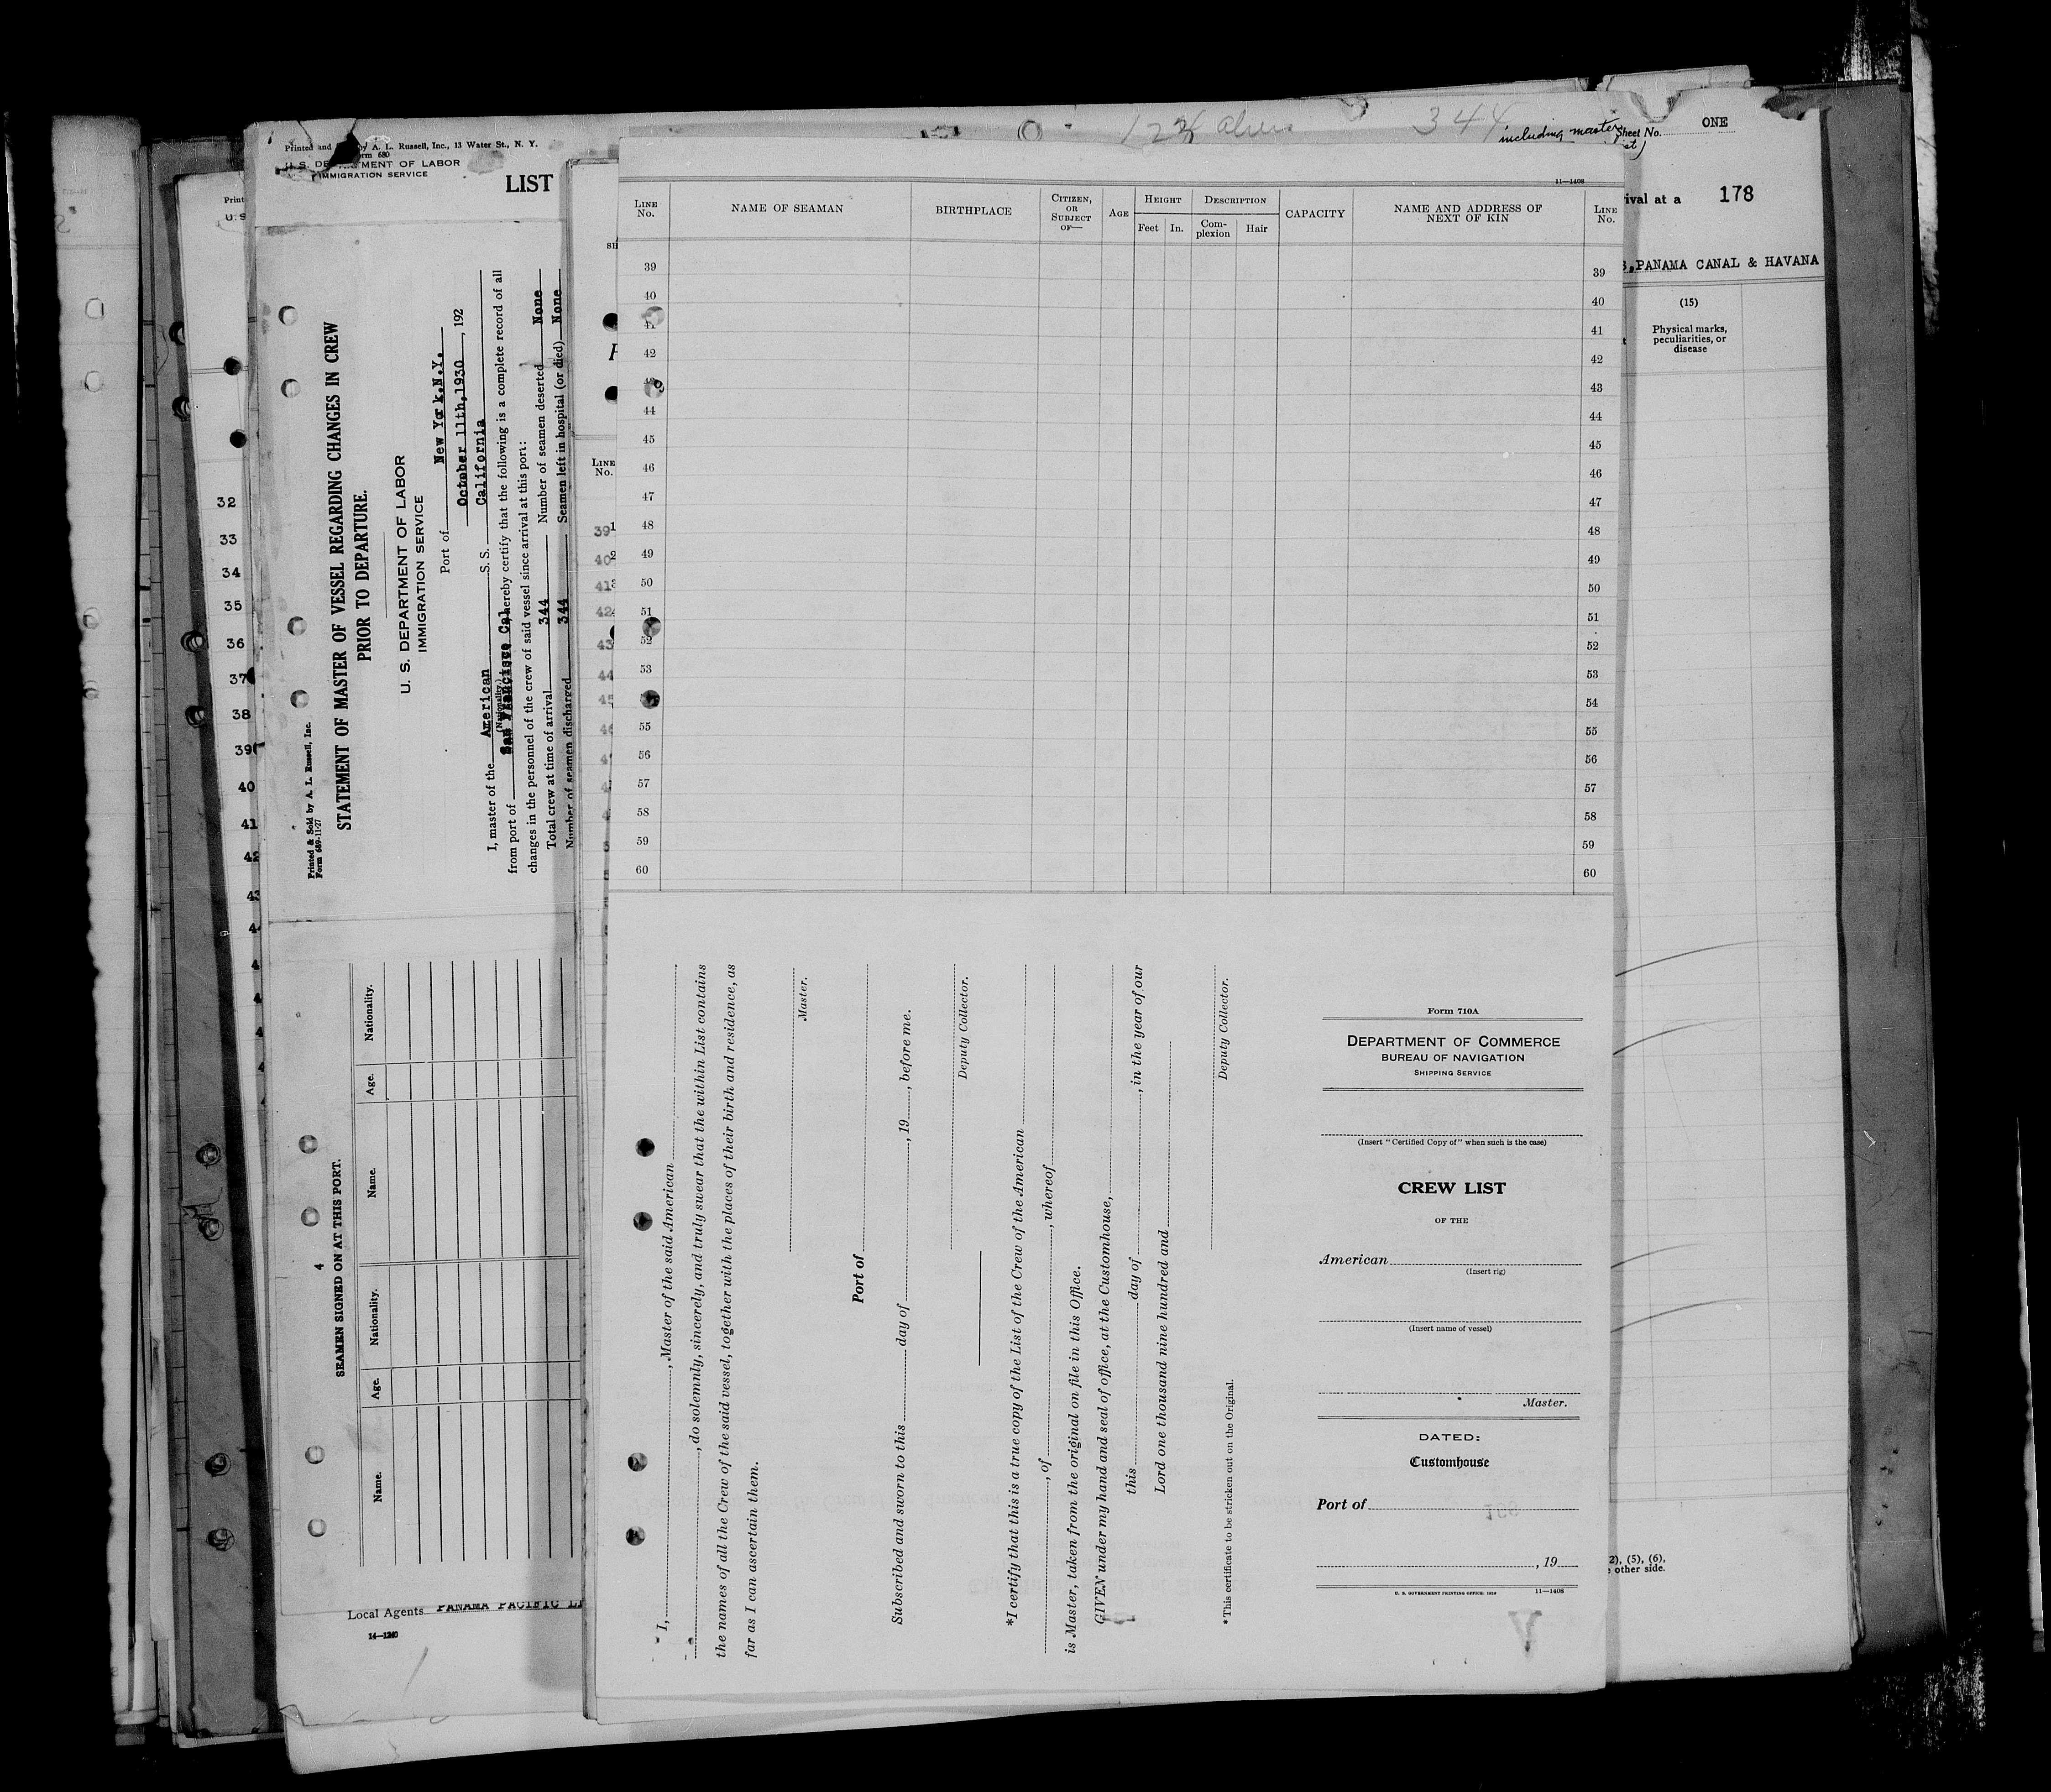 12 aliens 344
including master
Sheet No. ONE
rival at a 178
PANAMA CANAL & HAVANA
(15)
Physical marks,
peculiarities, or
disease
2), (5), (6),
other side.
Print
U. S
32
33
34
35
36
37
38
39
40
41
42
43
Printed and by A. L. Russell, Inc., 13 Water St., N. Y.
Form 680
U. S. DEPARTMENT OF LABOR
IMMIGRATION SERVICE
LIST
Printed & Sold by A. L. Russell, Inc.
Form 689-11-27
STATEMENT OF MASTER OF VESSEL REGARDING CHANGES IN CREW
PRIOR TO DEPARTURE.
U. S. DEPARTMENT OF LABOR
IMMIGRATION SERVICE
Port of New York.N.Y.
October 11th,1930, 192
I, master of the American S. S. California
(Nationality)
from port of San Francisco Cal hereby certify that the following is a complete record of all
changes in the personnel of the crew of said vessel since arrival at this port:
Total crew at time of arrival 344 Number of seamen deserted None
Number of seamen discharged 344 Seamen left in hospital (or died) None
4
SEAMEN SIGNED ON AT THIS PORT.
Name. Age. Nationality. Name. Age. Nationality.
Local Agents PANAMA PACIFIC
14—1240
LINE
No.
39
40
41
42
43
44
45
11—1408
LINE No. NAME OF SEAMAN BIRTHPLACE CITIZEN, OR SUBJECT OF— AGE HEIGHT Feet In. DESCRIPTION Complexion Hair CAPACITY NAME AND ADDRESS OF NEXT OF KIN LINE No.
39 39
40 40
41 41
42 42
43
44 44
45 45
46 46
47 47
48 48
49 49
50 50
51 51
52 52
53 53
54
55 55
56 56
57 57
58 58
59 59
60 60
I, , Master of the said American
, do solemnly, sincerely, and truly swear that the within List contains
the names of all the Crew of the said vessel, together with the places of their birth and residence, as
far as I can ascertain them.
Master.
Port of
Subscribed and sworn to this day of , 19 , before me.
Deputy Collector.
*I certify that this is a true copy of the List of the Crew of the American
, of , whereof
is Master, taken from the original on file in this Office.
GIVEN under my hand and seal of office, at the Customhouse,
this day of , in the year of our
Lord one thousand nine hundred and
Deputy Collector.
*This certificate to be stricken out on the Original.
Form 710A
DEPARTMENT OF COMMERCE
BUREAU OF NAVIGATION
SHIPPING SERVICE
(Insert "Certified Copy of" when such is the case)
CREW LIST
OF THE
American
(Insert rig)
(Insert name of vessel)
Master.
DATED:
Customhouse
Port of
, 19
U. S. GOVERNMENT PRINTING OFFICE: 1929 11—1408